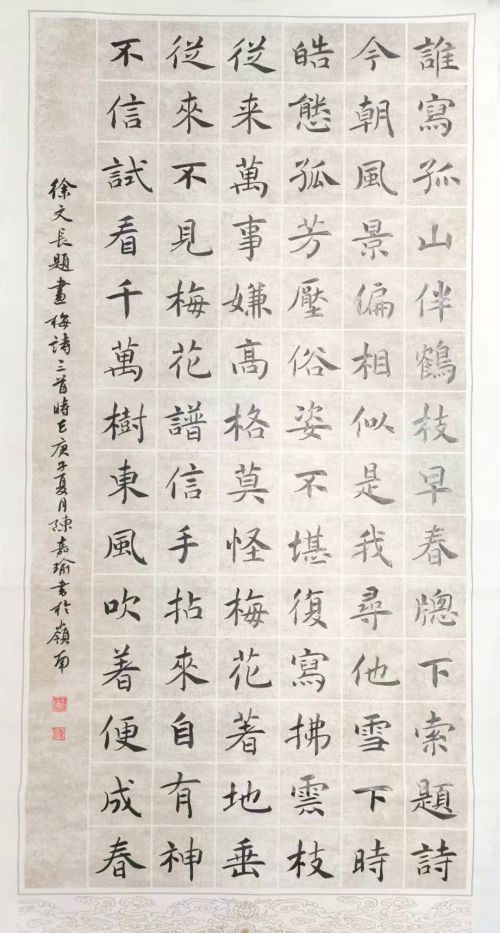 誰寫孤山伴鶴枝早春牕下索題詩
今朝風景偏相似是我尋他雪下時
皓態孤芳壓俗姿不堪復寫拂雲枝
從来萬事嫌高格莫怪梅花著地垂
從來不見梅花譜信手拈來自有神
不信試看千萬樹東風吹着便成春
徐文長題畫梅詩三首時庚子夏月陳嘉瑜書於嶺南